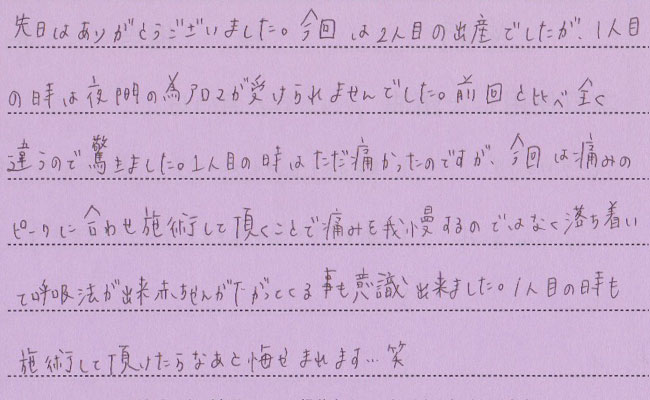 先日はありがとうございました。今回は2人目の出産でしたが、1人目
の時は夜間の為アロマが受けられませんでした。前回と比べ全く
違うので驚きました。1人目の時はただ痛かったのですが、今回は痛みの
ピークに合わせ施術して頂くことで痛みを我慢するのではなく落ち着い
て呼吸法が出来赤ちゃんが下がってくる事も意識出来ました。1人目の時も
施術して頂けたらなあと悔やまれます…笑